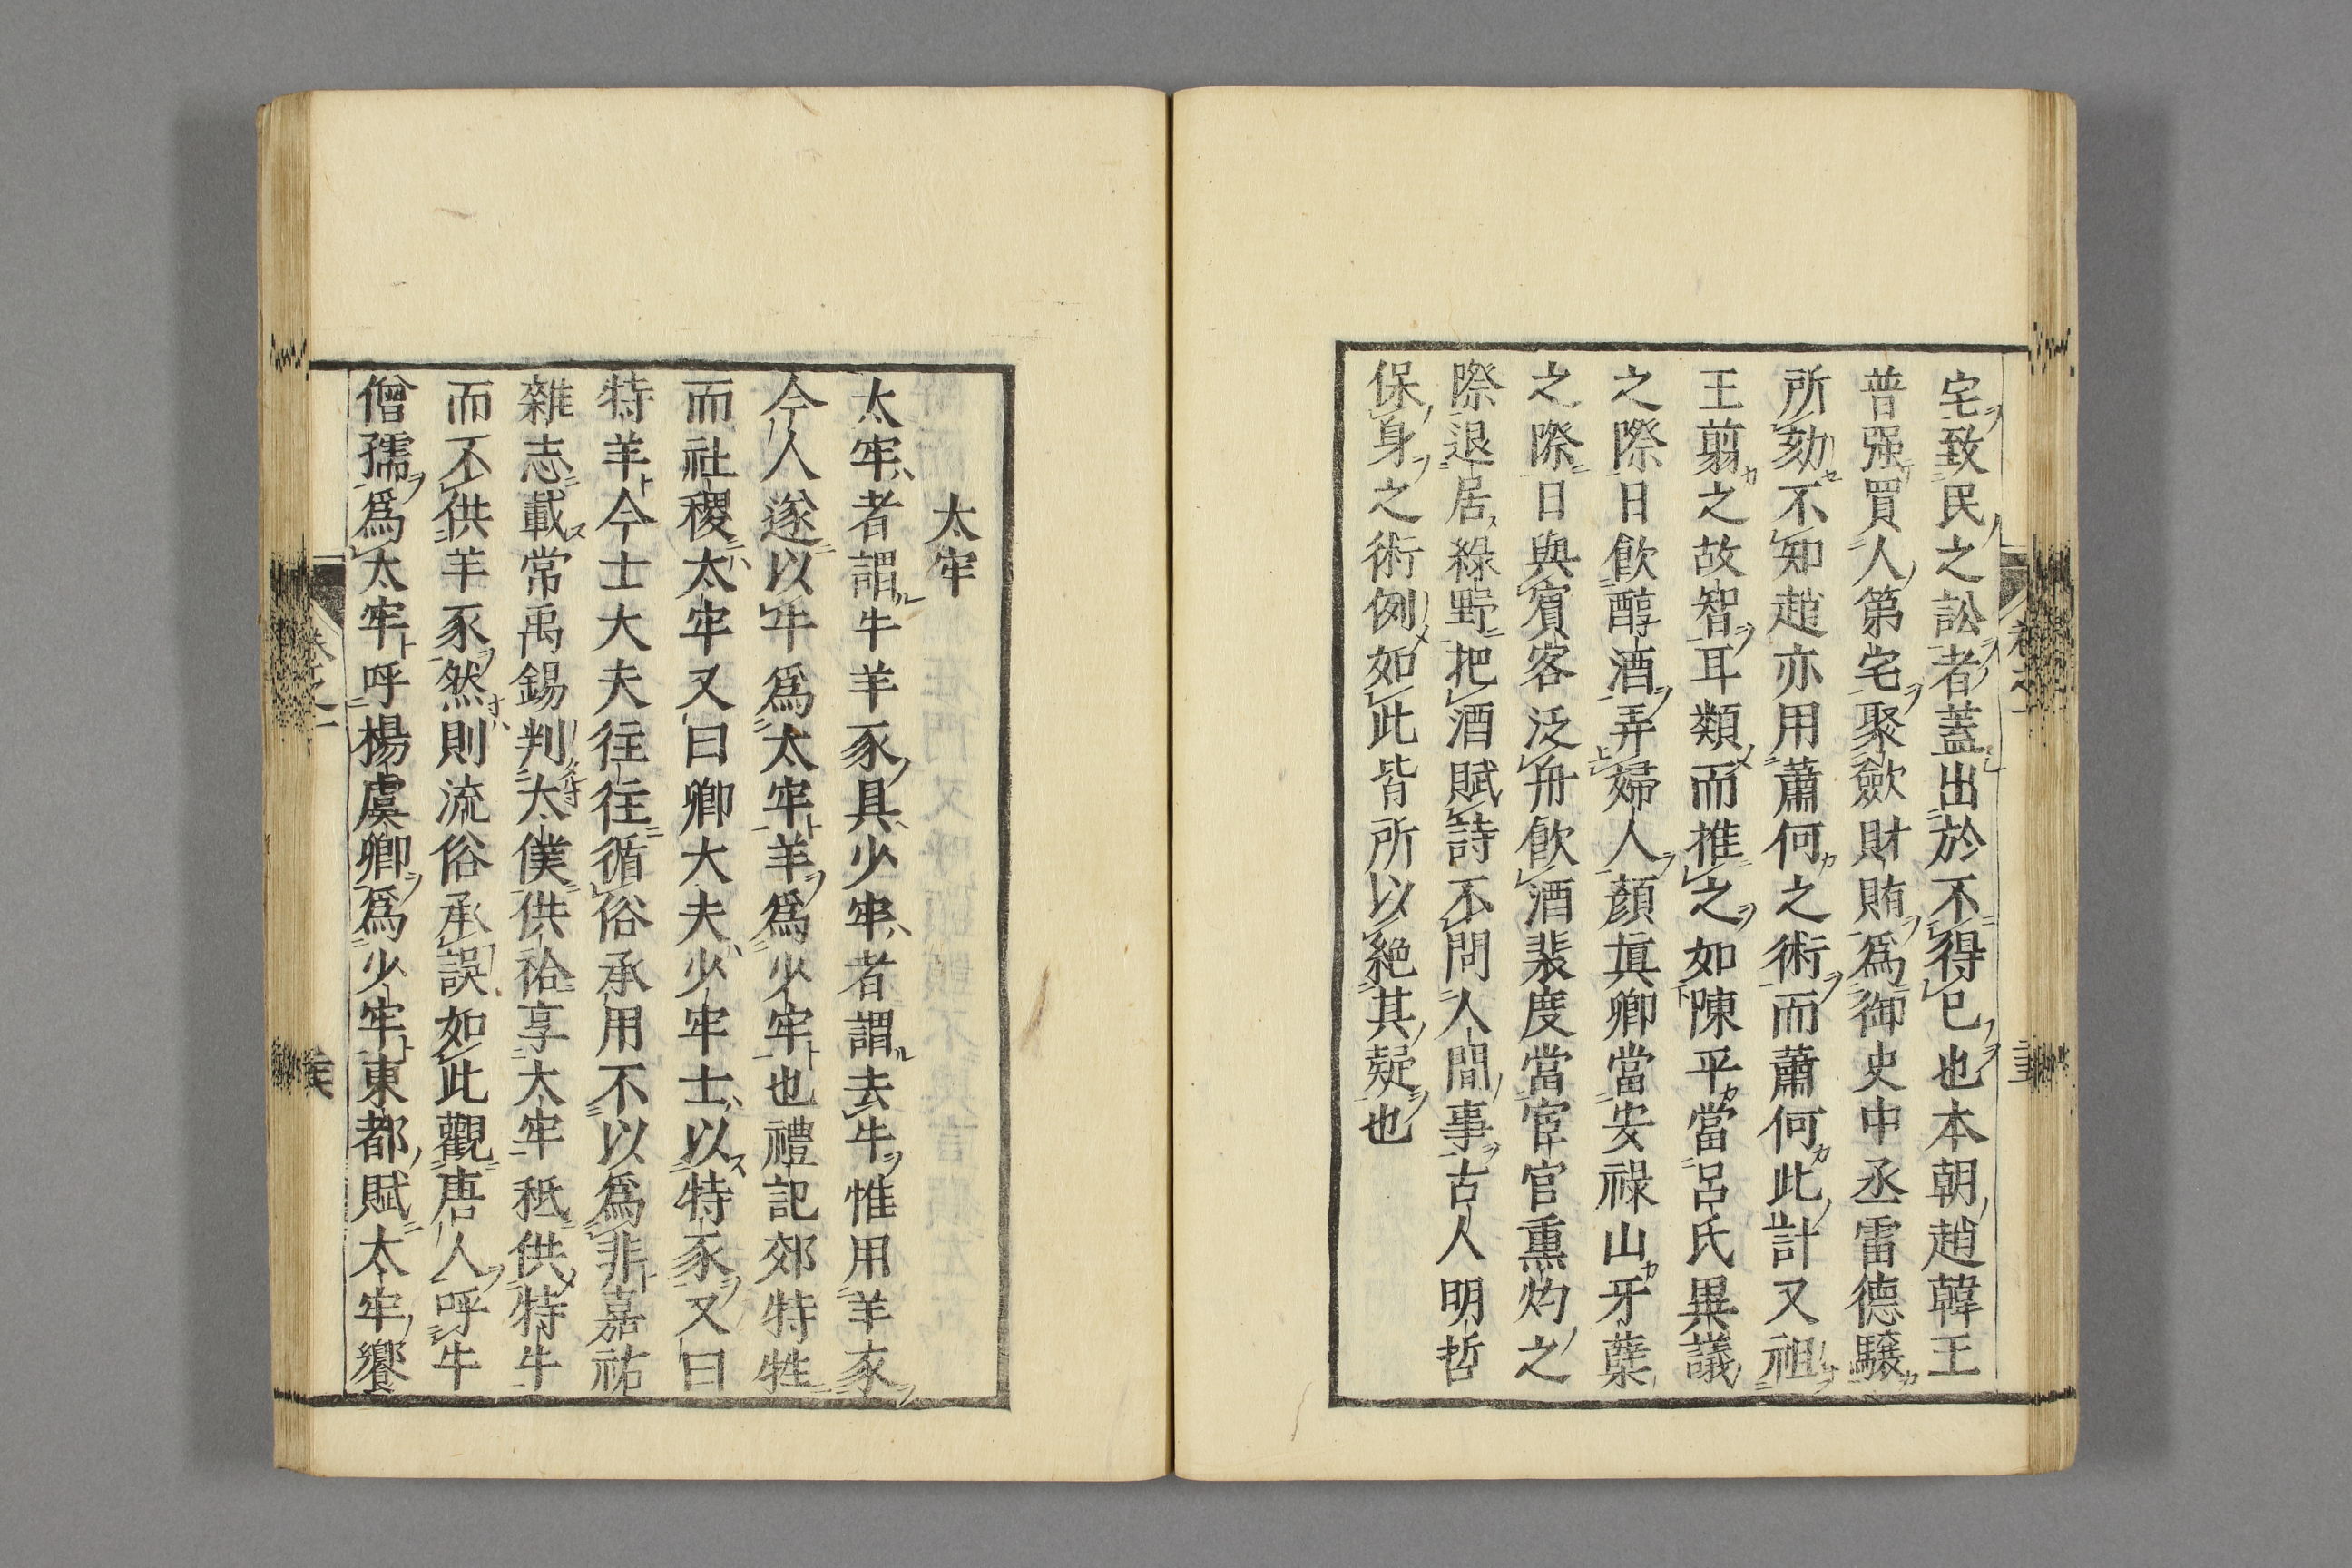 宅致民之訟者蓋出於不得已也本朝趙韓王
普强買人第宅聚斂財賄為御史中丞雷德驤
所劾不知趙亦用蕭何之術而蕭何此計又祖
王翦之故智耳類而推之如陳平當呂氏異議
之際日飮醇酒弄婦人顔眞卿當安祿山牙蘖
之際日與賓客泛舟飮酒裴度當宦官熏灼之
際退居綠野把酒賦詩不問人間事古人明哲
保身之術例如此皆所以絶其疑也
太牢
太牢者謂牛羊豕具少牢者謂去牛惟用羊豕
今人遂以牛爲太牢羊爲少牢也禮記郊特牲
而社稷太牢又曰卿大夫少牢士以特豕又曰
特羊今士大夫往往循俗承用不以爲非嘉祐
雜志載常禹錫判太僕供祫享太牢秖供特牛
而不供羊豕然則流俗承誤如此觀唐人呼牛
僧孺爲太牢呼楊虞卿爲少牢東都賦太牢饗